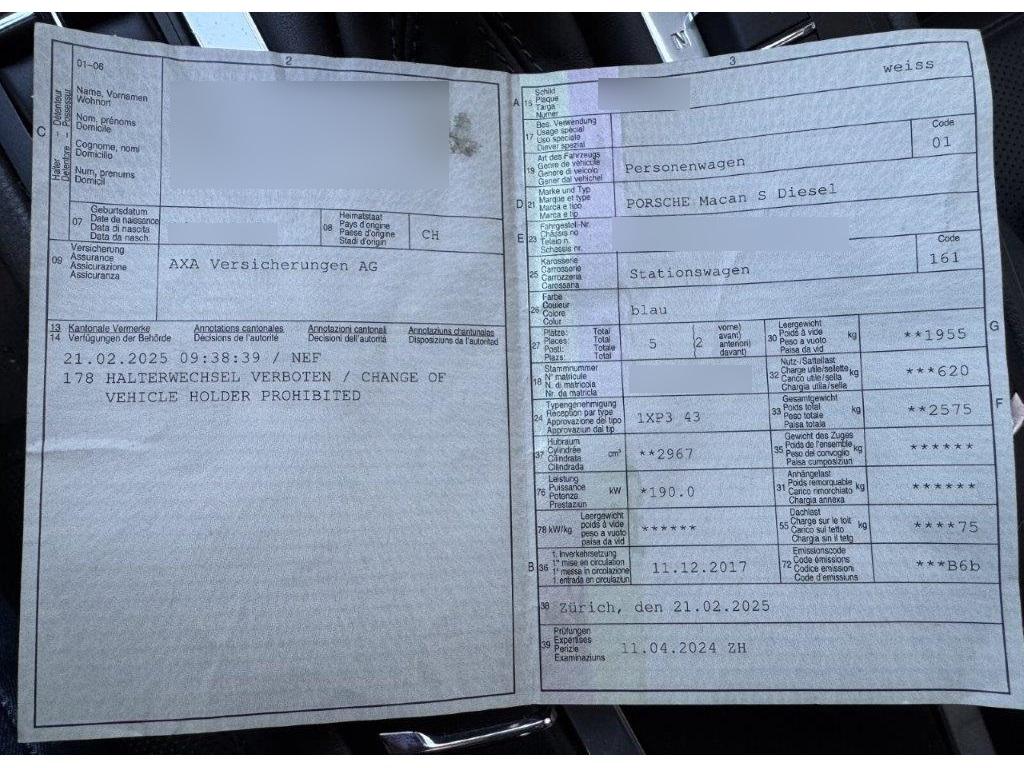 2
01-06
C
Halter - Détenteur
Detentore - Possessur
Name, Vornamen
Wohnort
Nom, prénoms
Domicile
Cognome, nomi
Domicilio
Num, prenums
Domicil
07
Geburtsdatum
Date de naissance
Data di nascita
Data da nasch.
08
Heimatstaat
Pays d'origine
Paese d'origine
Stadi d'origin
CH
09
Versicherung
Assurance
Assicurazione
Assicuranza
AXA Versicherungen AG
13 Kantonale Vermerke Annotations cantonales Annotazioni cantonali Annotaziuns chantunalas
14 Verfügungen der Behörde Décisions de l'autorité Decisioni dell'autorità Disposiziuns da l'autoritad
21.02.2025 09:38:39 / NEF
178 HALTERWECHSEL VERBOTEN / CHANGE OF
VEHICLE HOLDER PROHIBITED
3
A 15
Schild
Plaque
Targa
Numer
weiss
17
Bes. Verwendung
Usage spécial
Uso speciale
Diever spezial
19
Art des Fahrzeugs
Genre de véhicule
Genere di veicolo
Gener dal vehichel
Personenwagen
Code
01
D 21
Marke und Typ
Marque et type
Marca e tipo
Marca e tip
PORSCHE Macan S Diesel
E 23
Fahrgestell-Nr.
Châssis no
Telaio n.
Schassis nr.
25
Karosserie
Carrosserie
Carrozzeria
Carossaria
Stationswagen
Code
161
26
Farbe
Couleur
Colore
Colur
blau
27
Plätze: Total
Places: Total
Posti: Totale
Plazs: Total
5
(2
vorne)
avant)
anteriori)
davant)
G
30
Leergewicht
Poids à vide
Peso a vuoto
Paisa da vid
kg
**1955
18
Stammnummer
N° matricule
N. di matricola
Nr. da matricla
32
Nutz-/Sattellast
Charge utile/sellette
Carico utile/sella
Chargia utila/sella
kg
***620
24
Typengenehmigung
Réception par type
Approvazione del tipo
Approvaziun dal tip
1XP3 43
F
33
Gesamtgewicht
Poids total
Peso totale
Paisa totala
kg
**2575
37
Hubraum
Cylindrée
Cilindrata
Cilindrada
cm³
**2967
35
Gewicht des Zuges
Poids de l'ensemble
Peso del convoglio
Paisa cumposiziun
kg
******
76
Leistung
Puissance
Potenza
Prestaziun
kW
*190.0
31
Anhängelast
Poids remorquable
Carico rimorchiato
Chargia annexa
kg
******
78 kW/kg
Leergewicht
poids à vide
peso a vuoto
paisa da vid
******
55
Dachlast
Charge sur le toit
Carico sul tetto
Chargia sin il tetg
kg
****75
B 36
1. Inverkehrsetzung
1re mise en circulation
1a messa in circolazione
1. entrada en circulaziun
11.12.2017
72
Emissionscode
Code émissions
Codice emissioni
Code d'emissiuns
***B6b
38 Zürich, den 21.02.2025
39
Prüfungen
Expertises
Perizie
Examinaziuns
11.04.2024 ZH
N